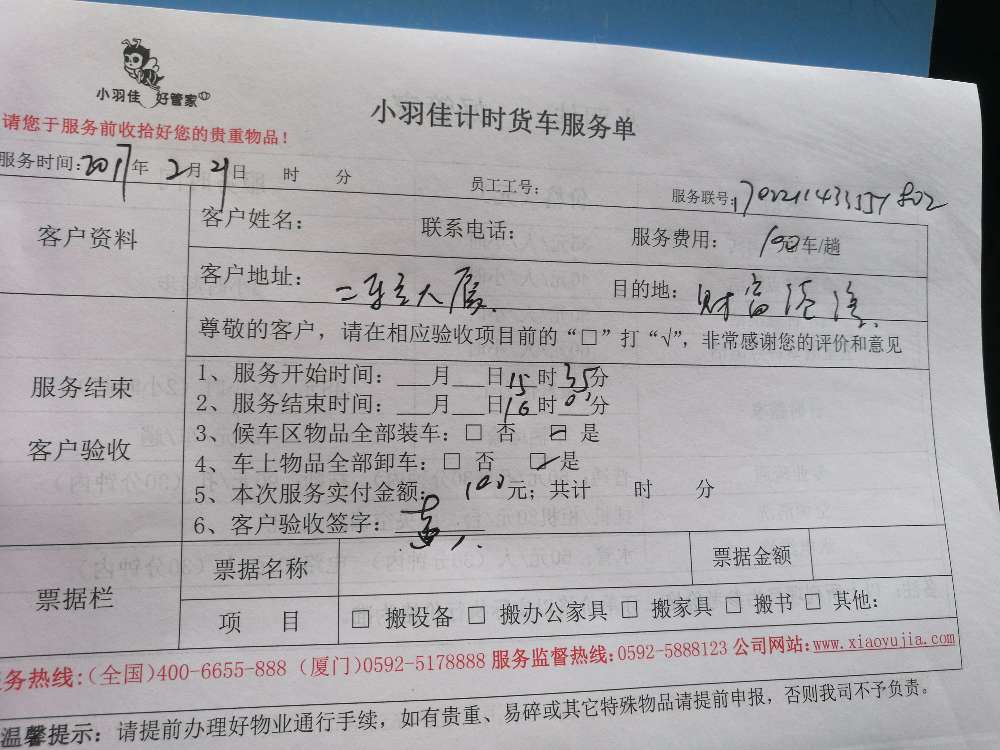 小羽佳 好管家
小羽佳计时货车服务单
请您于服务前收拾好您的贵重物品！
服务时间：2017年 2月21日 时 分 员工工号： 服务联号：
客户资料
客户姓名： 联系电话： 服务费用：100车/趟
客户地址： 大厦 目的地：财富港湾
尊敬的客户，请在相应验收项目前的“□”打“√”，非常感谢您的评价和意见
服务结束
客户验收
1、服务开始时间：___月___日15时35分
2、服务结束时间：___月___日16时0分
3、候车区物品全部装车：□ 否 ☑ 是
4、车上物品全部卸车：□ 否 ☑ 是
5、本次服务实付金额：100元；共计 时 分
6、客户验收签字：
票据栏
票据名称 票据金额
项 目 □ 搬设备 □ 搬办公家具 □ 搬家具 □ 搬书 □ 其他：
务热线：（全国）400-6655-888（厦门）0592-5178888 服务监督热线：0592-5888123 公司网站：www.xiaoyujia.com
温馨提示：请提前办理好物业通行手续，如有贵重、易碎或其它特殊物品请提前申报，否则我司不予负责。